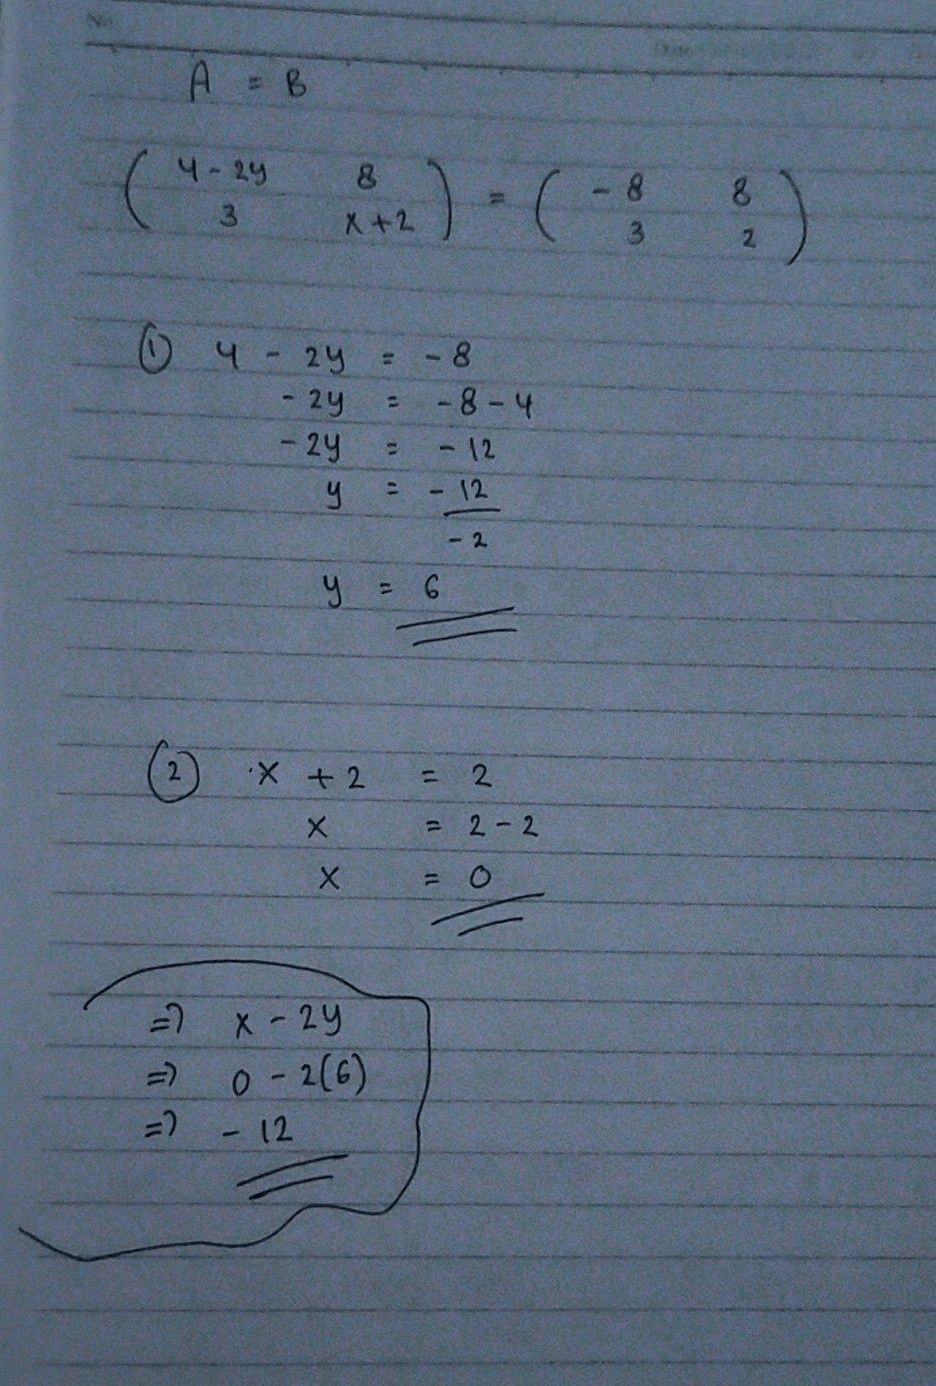 No.
A = B
( 4 - 2y 8 ) = ( - 8 8 )
( 3 x + 2 ) ( 3 2 )
① 4 - 2y = - 8
- 2y = - 8 - 4
- 2y = - 12
y = - 12
- 2
y = 6
② x + 2 = 2
x = 2 - 2
x = 0
=> x - 2y
=> 0 - 2(6)
=> - 12